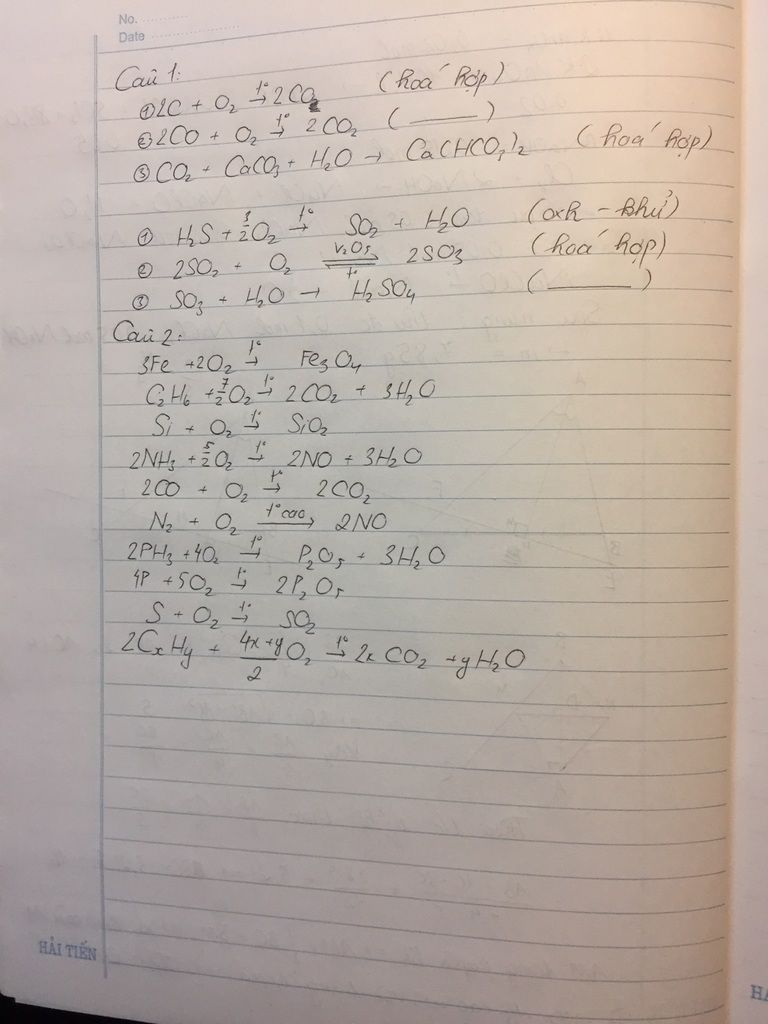 No.
Date
Câu 1:
① 2C + O₂ →t° 2CO₂ (hoá hợp)
② 2CO + O₂ →t° 2CO₂ (———)
③ CO₂ + CaCO₃ + H₂O → Ca(HCO₃)₂ (hoá hợp)
① H₂S + 3/2O₂ →t° SO₂ + H₂O (oxh - khử)
② 2SO₂ + O₂ ⇌ V₂O₅ t° 2SO₃ (hoá hợp)
③ SO₃ + H₂O → H₂SO₄ (———)
Câu 2:
3Fe + 2O₂ →t° Fe₃O₄
C₂H₆ + 7/2O₂ →t° 2CO₂ + 3H₂O
Si + O₂ →t° SiO₂
2NH₃ + 5/2O₂ →t° 2NO + 3H₂O
2CO + O₂ →t° 2CO₂
N₂ + O₂ →t° cao 2NO
2PH₃ + 4O₂ →t° P₂O₅ + 3H₂O
4P + 5O₂ →t° 2P₂O₅
S + O₂ →t° SO₂
2CxHy + (4x+y)/2 O₂ →t° 2xCO₂ + yH₂O
HẢI TIẾN